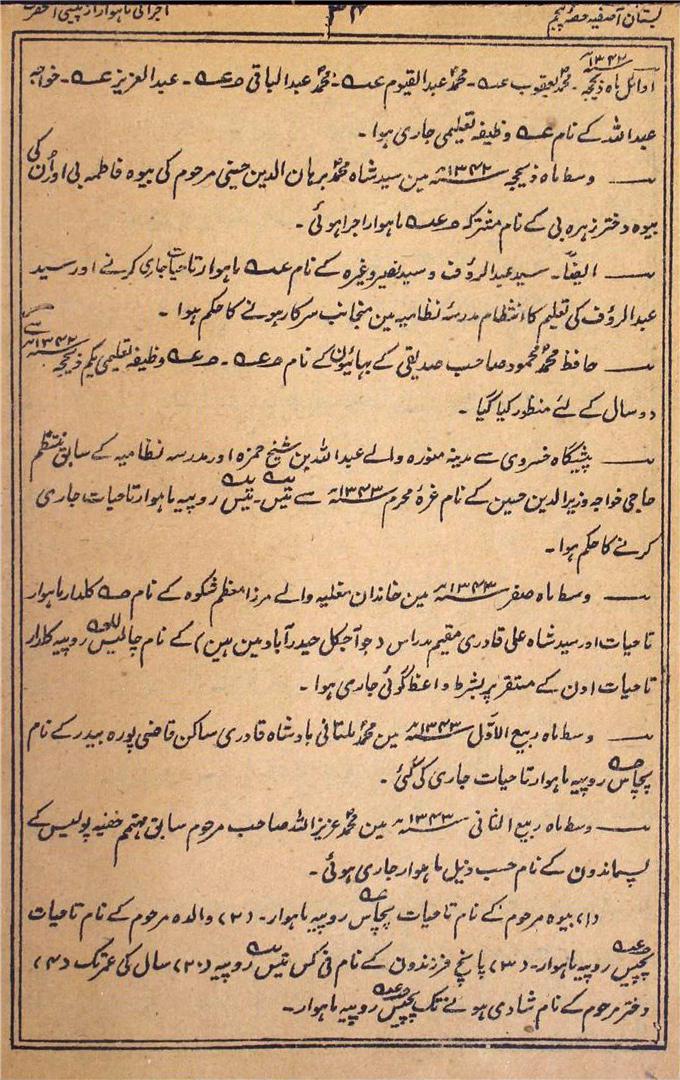 بستان آصفیہ حصۂ پنجم ۳۴ اجرائی ماہوار از پیشی اعلٰحضرت
اوائل ماہ ذیحجہ ۱۳۴۲ھ۔ محمد یعقوب۔ محمد عبدالقیوم۔ محمد عبدالباقی۔ عبدالعزیز۔ خواجہ
عبداللہ کے نام وظیفہ تعلیمی جاری ہوا۔
ــــ وسط ماہ ذیحجہ ۱۳۴۲ھ مین سید شاہ محمد برہان الدین حسینی مرحوم کی بیوہ فاطمہ بی اور اُن کی
بیوہ دختر زہرہ بی کے نام مشترکہ ماہوار اجرا ہوئی۔
ــــ ایضاً۔ سید عبدالرؤف و سید نصیر وغیرہ کے نام ماہوار تاحیات جاری کرنے اور سید
عبدالرؤف کی تعلیم کا انتظام مدرسۂ نظامیہ مین منجانب سرکار ہونے کا حکم ہوا۔
ــــ حافظ محمد محمود صاحب صدیقی کے بہائیون کے نام وظیفہ تعلیمی یکم ذیحجہ ۱۳۴۲ھ سے
دو سال کے لئے منظور کیا گیا۔
ــــ پیشگاہ خسروی سے مدینہ منورہ والے عبداللہ بن شیخ حمزہ اور مدرسہ نظامیہ کے سابق منتظم
حاجی خواجہ وزیر الدین حسین کے نام غرۂ محرم ۱۳۴۳ھ سے تیس۔ تیس روپیہ ماہوار تاحیات جاری
کرنے کا حکم ہوا۔
ــــ وسط ماہ صفر ۱۳۴۳ھ مین خاندان مغلیہ والے مرزا معظم شکوہ کے نام کلدار ماہوار
تاحیات اور سید شاہ علی قادری مقیم مدراس (جو آجکل حیدرآباد مین ہین) کے نام چالیس روپیہ کلدار
تاحیات اون کے مستقر پر بشرط واعظ گوئی جاری ہوا۔
ــــ وسط ماہ ربیع الاوّل ۱۳۴۳ھ مین محمد ملتانی بادشاہ قادری ساکن قاضی پورہ بیدر کے نام
پچاس روپیہ ماہوار تاحیات جاری کی گئی۔
ــــ وسط ماہ ربیع الثانی ۱۳۴۳ھ مین محمد عزیز اللہ صاحب مرحوم سابق مہتمم خفیہ پولیس کے
پسماندون کے نام حسب ذیل ماہوار جاری ہوئی۔
(۱) بیوہ مرحوم کے نام تاحیات پچاس روپیہ ماہوار۔ (۲) والدہ مرحوم کے نام تاحیات
پچیس روپیہ ماہوار۔ (۳) پانچ فرزندون کے نام فی کس تیس روپیہ (۲۰) سال کی عمر تک (۴)
دختر مرحوم کے نام شادی ہونے تک پچیس روپیہ ماہوار۔